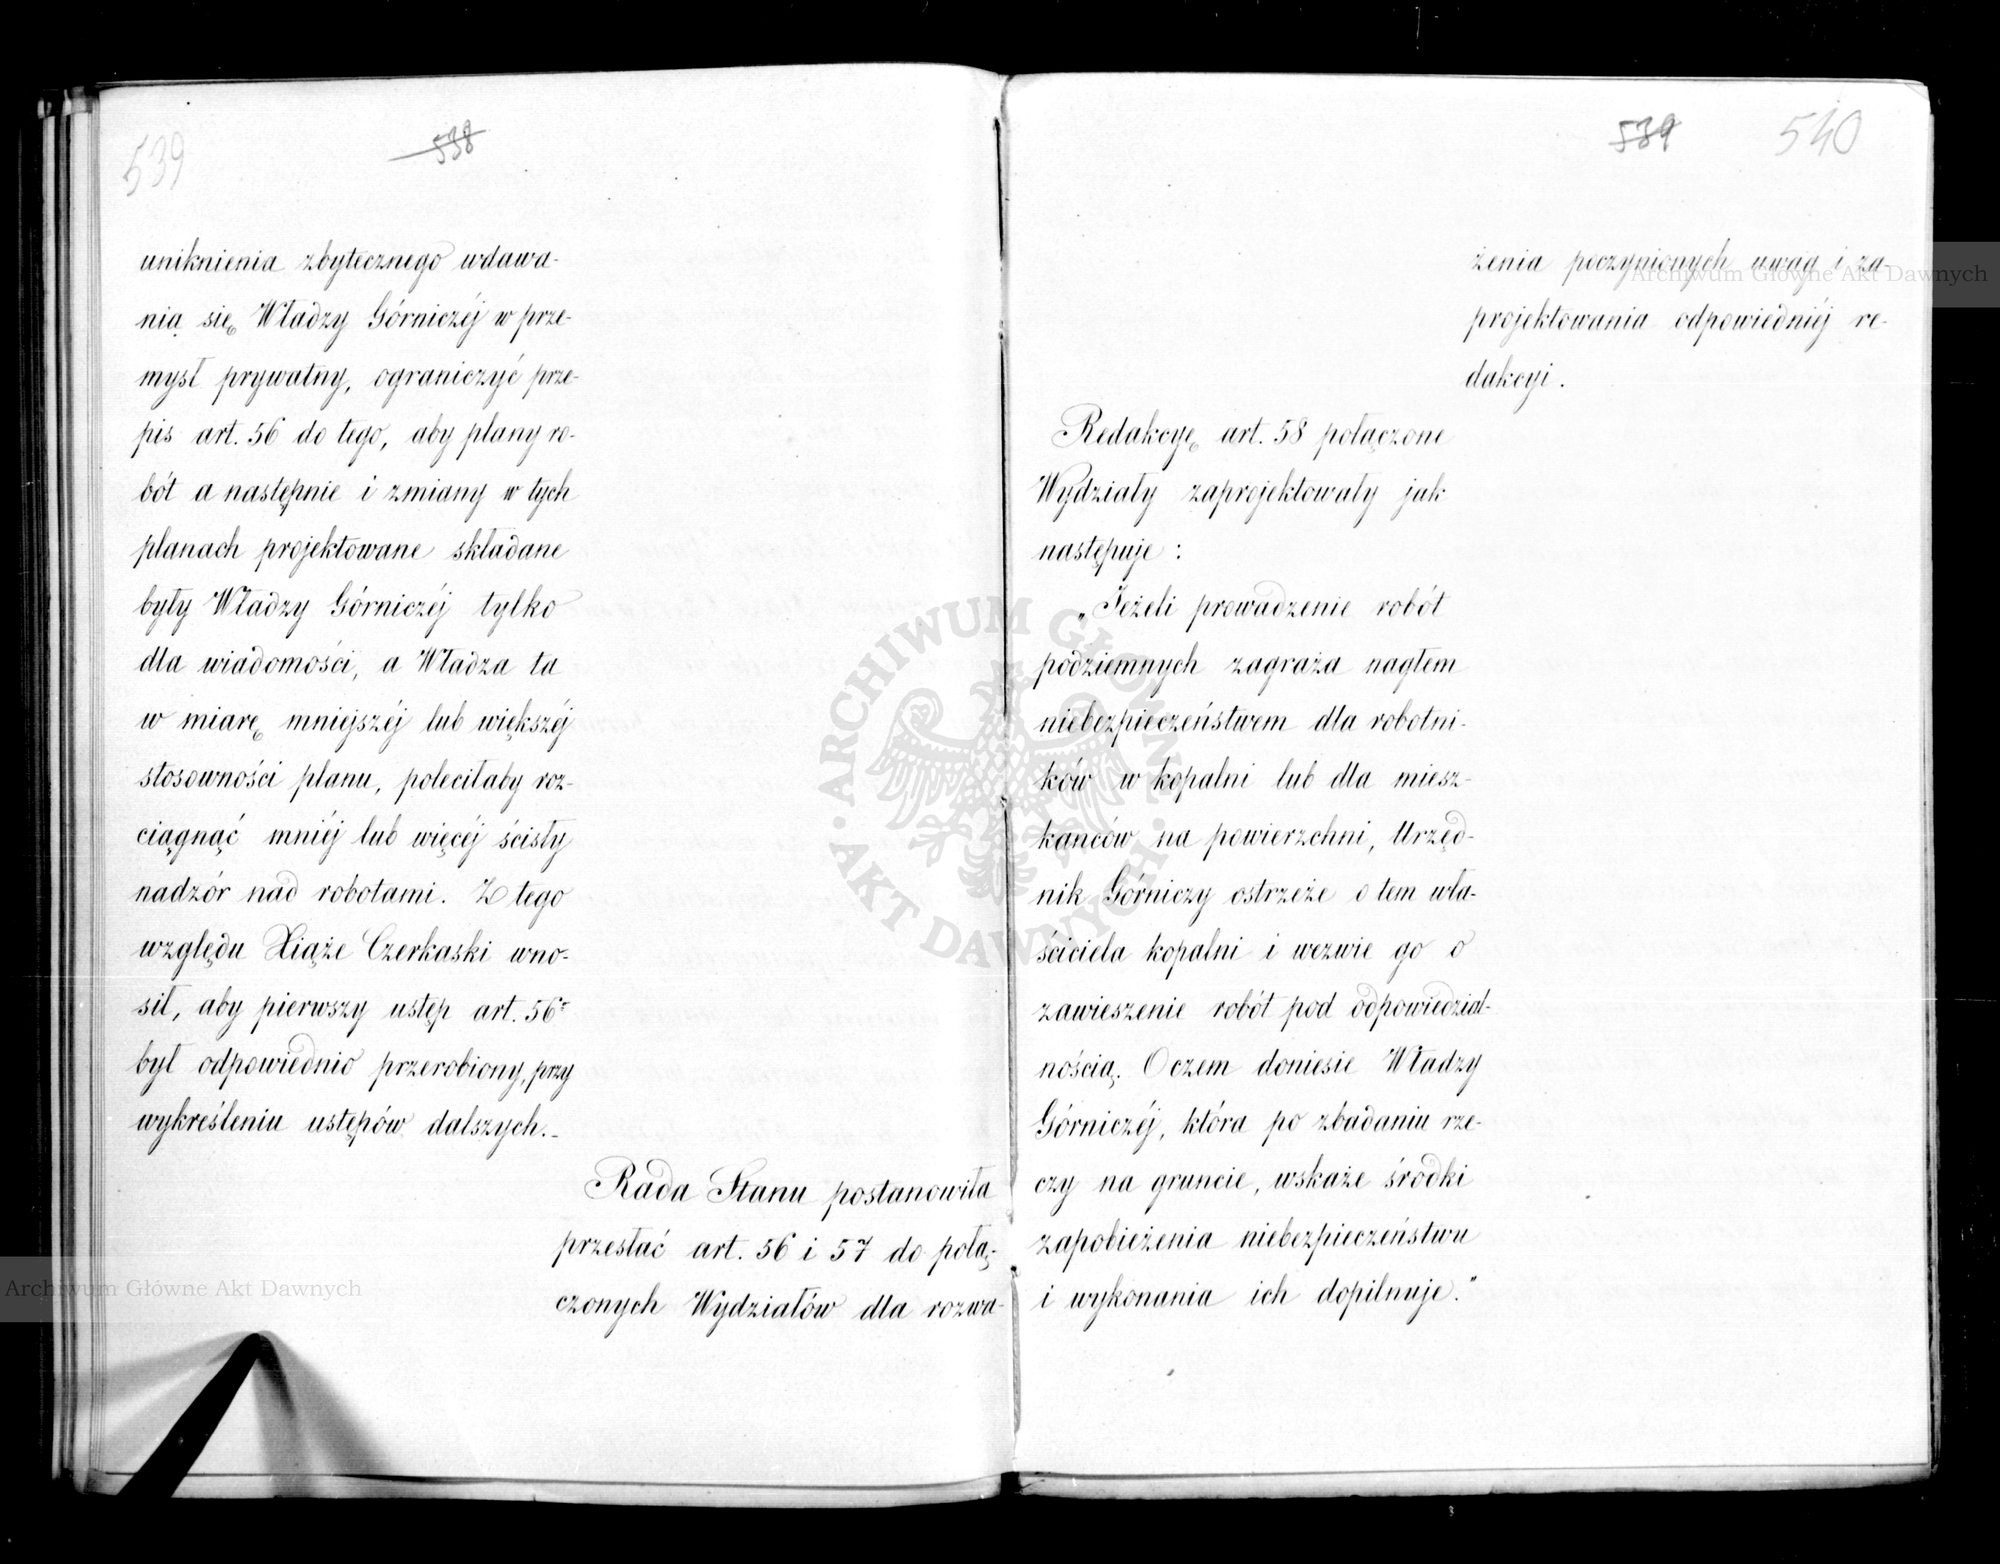 539
538
uniknienia zbytecznego wdawa-
nia się Władzy Górniczéj w prze-
mysł prywatny, ograniczyć prze-
pis art. 56 do tego, aby plany ro-
bót a następnie i zmiany w tych
planach projektowane składane
były Władzy Górniczéj tylko
dla wiadomości, a Władza ta
w miarę mniejszéj lub większéj
stosowności planu, poleciłaby roz-
ciągnąć mniéj lub więcéj ścisły
nadzór nad robotami. Z tego
względu Xiąże Czerkaski wno-
sił, aby pierwszy ustęp art. 56r
był odpowiednio przerobiony, przy
wykreśleniu ustępów dalszych.-
Rada Stanu postanowiła
przesłać art. 56 i 57 do połą-
czonych Wydziałów dla rozwa-
539
540
żenia poczynionych uwag i za-
projektowania odpowiedniéj re-
dakcyi.
Redakcyę art. 58 połączone
Wydziały zaprojektowały jak
następuje:
„Jeżeli prowadzenie robót
podziemnych zagraża nagłem
niebezpieczeństwem dla robotni-
ków w kopalni lub dla miesz-
kańców na powierzchni, Urzęd-
nik Górniczy ostrzeże o tem wła-
ściciela kopalni i wezwie go o
zawieszenie robót pod odpowiedzial-
nością. Oczem doniesie Władzy
Górniczéj, która po zbadaniu rze-
czy na gruncie, wskaże środki
zapobieżenia niebezpieczeństwu
i wykonania ich dopilnuje."
Archiwum Główne Akt Dawnych
Archiwum Główne Akt Dawnych
ARCHIWUM GŁÓWNE · AKT DAWNYCH ·